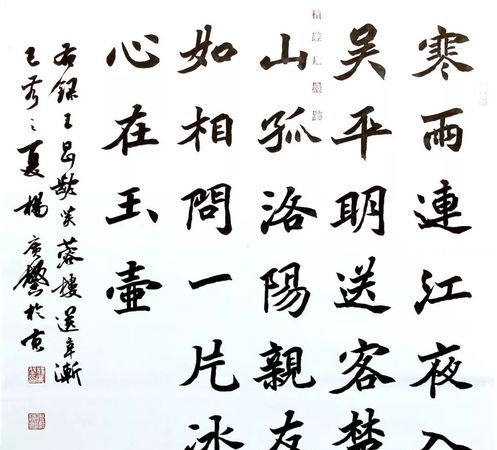 寒雨連江夜入
吴平明送客楚
山孤洛陽親友
如相問一片冰
心在玉壺
右錄王昌齡芙蓉樓送辛漸
己亥之夏楊廣馨於京